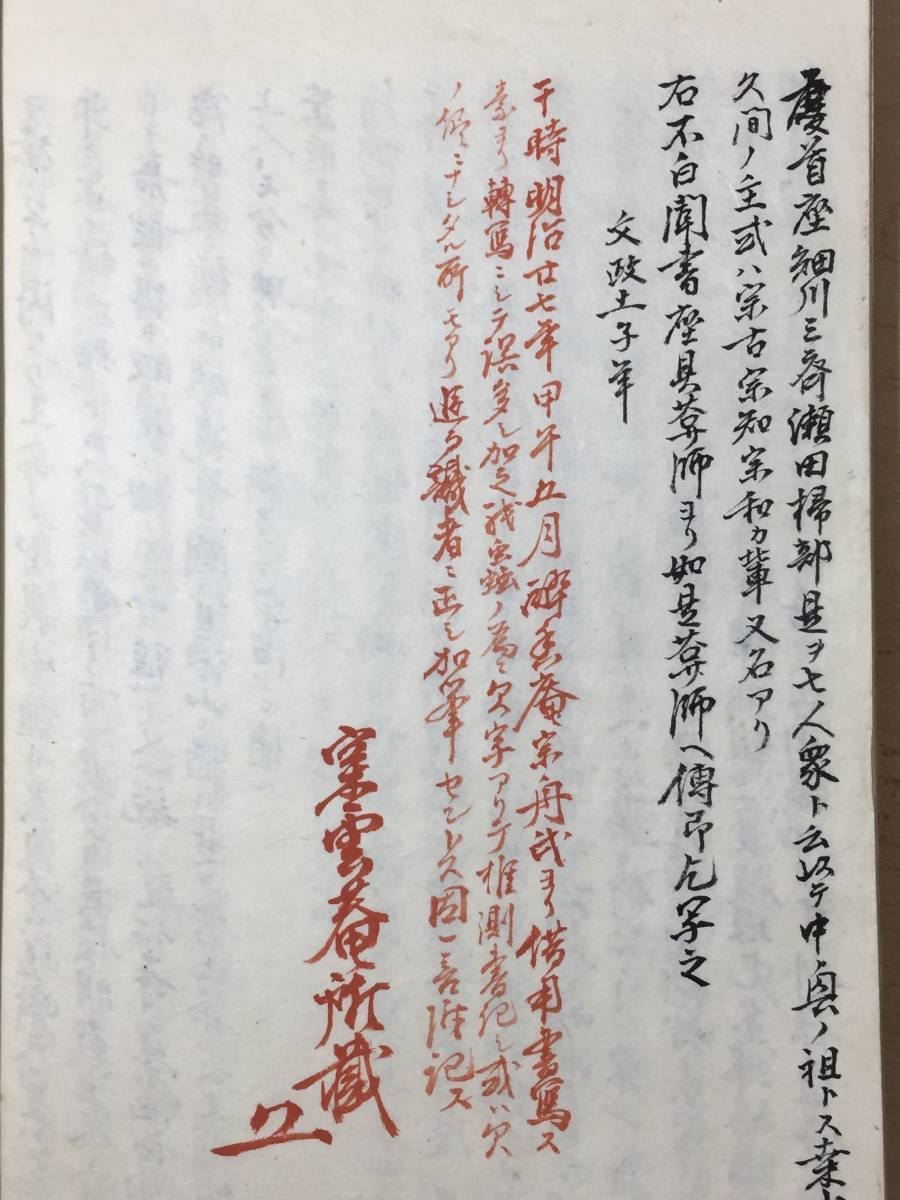 慶首座細川三斎瀬田掃部是ヲ七人衆ト云以テ中真ノ祖トス桑
久間ノ主式ハ宗古宗知宗和カ輩又名アリ
右不白聞書座具莽師ヨリ如是莽師ヘ傳即乞写之
文政土子年
干時明治廿七年甲午五月酔香庵宗舟氏ヨリ借用書写ス
素ヨリ轉写ニシテ誤多シ加之残虫ノ為ニ欠字アリテ推測書紀シ或ハ欠
ノ侭ニナシタル所モアリ追而識者ニ正シ加筆セントス因一言誰記ス
寒雲菴所蔵